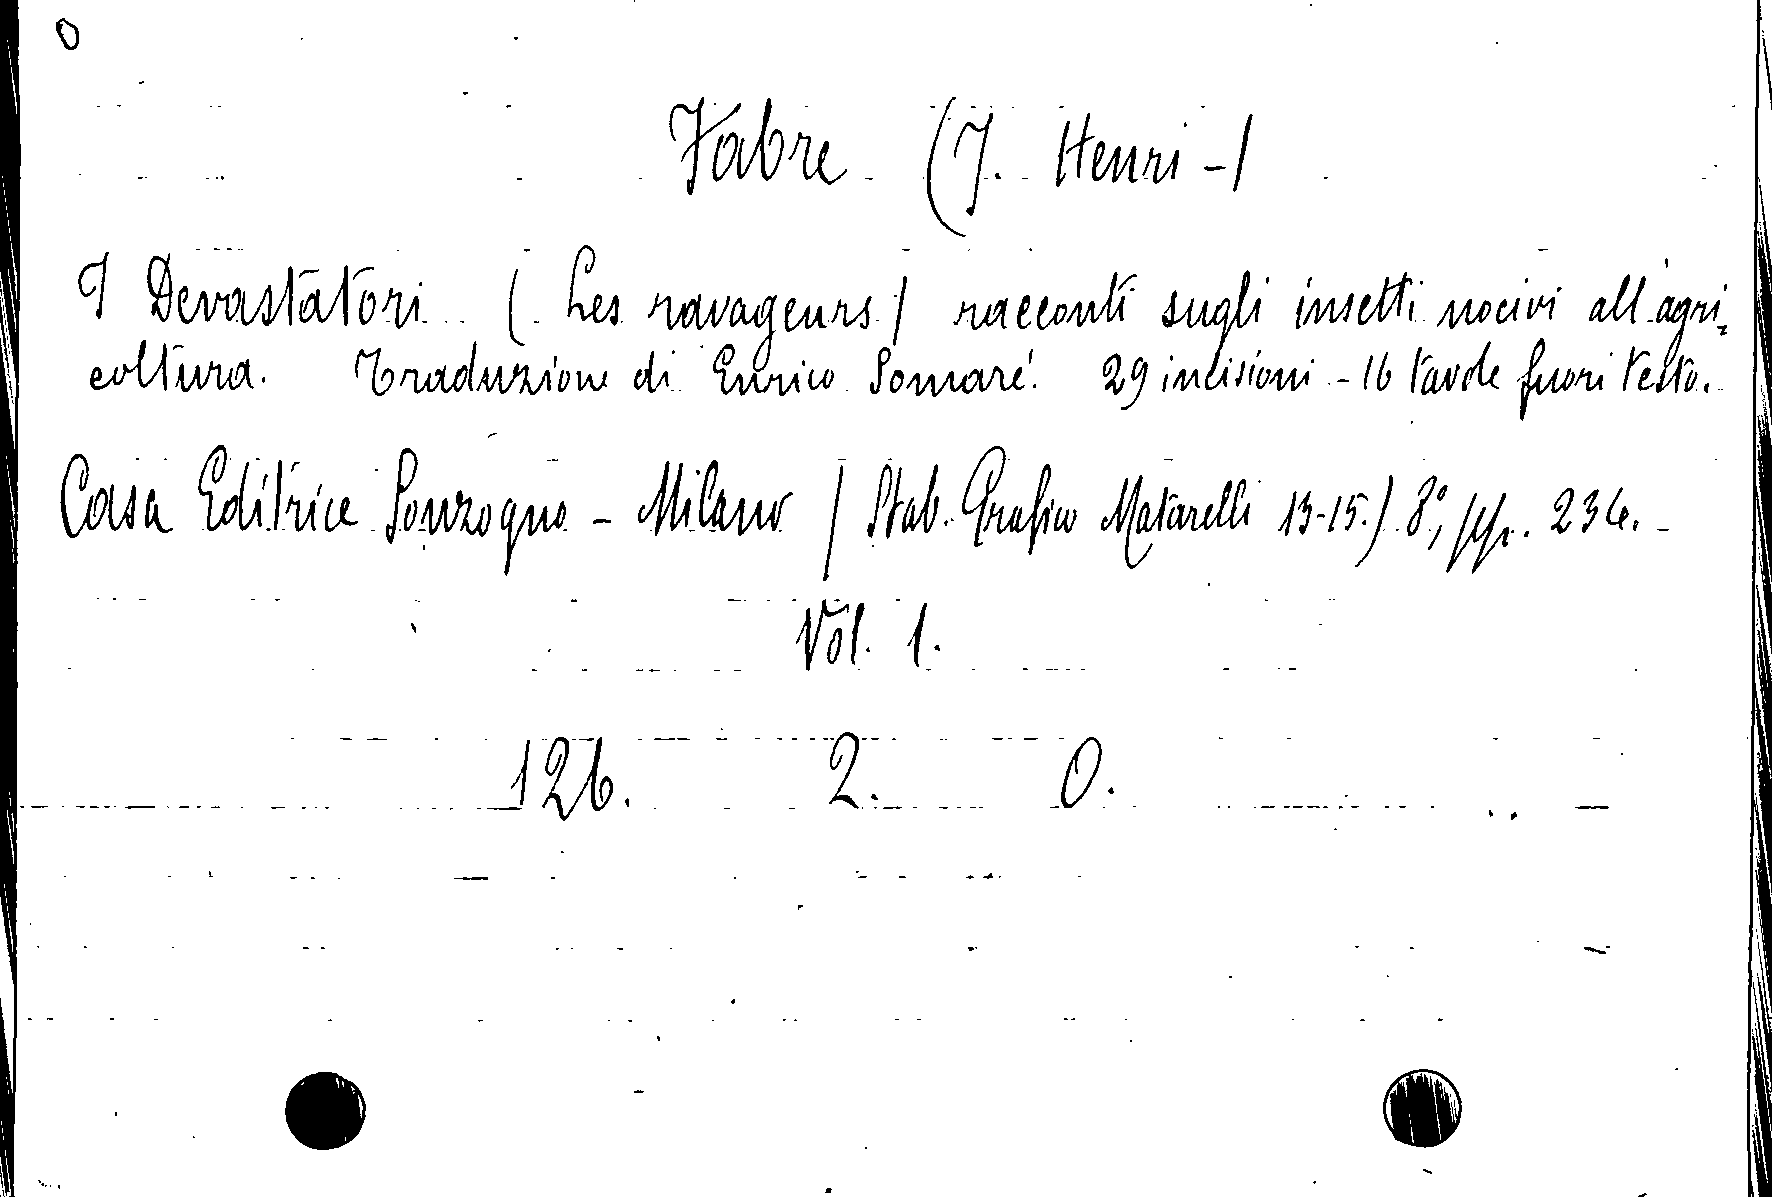 0
Fabre (J. Henri-)
I Devastatori (Les ravageurs) racconti sugli insetti nocivi all'agri-
coltura. Traduzione di Enrico Somaré. 29 incisioni - 16 tavole fuori testo.
Casa Editrice Sonzogno - Milano (Stab. Grafico Matarelli 13-15.) 8°, pp. 236. -
Vol. 1.
126. 2. 0.